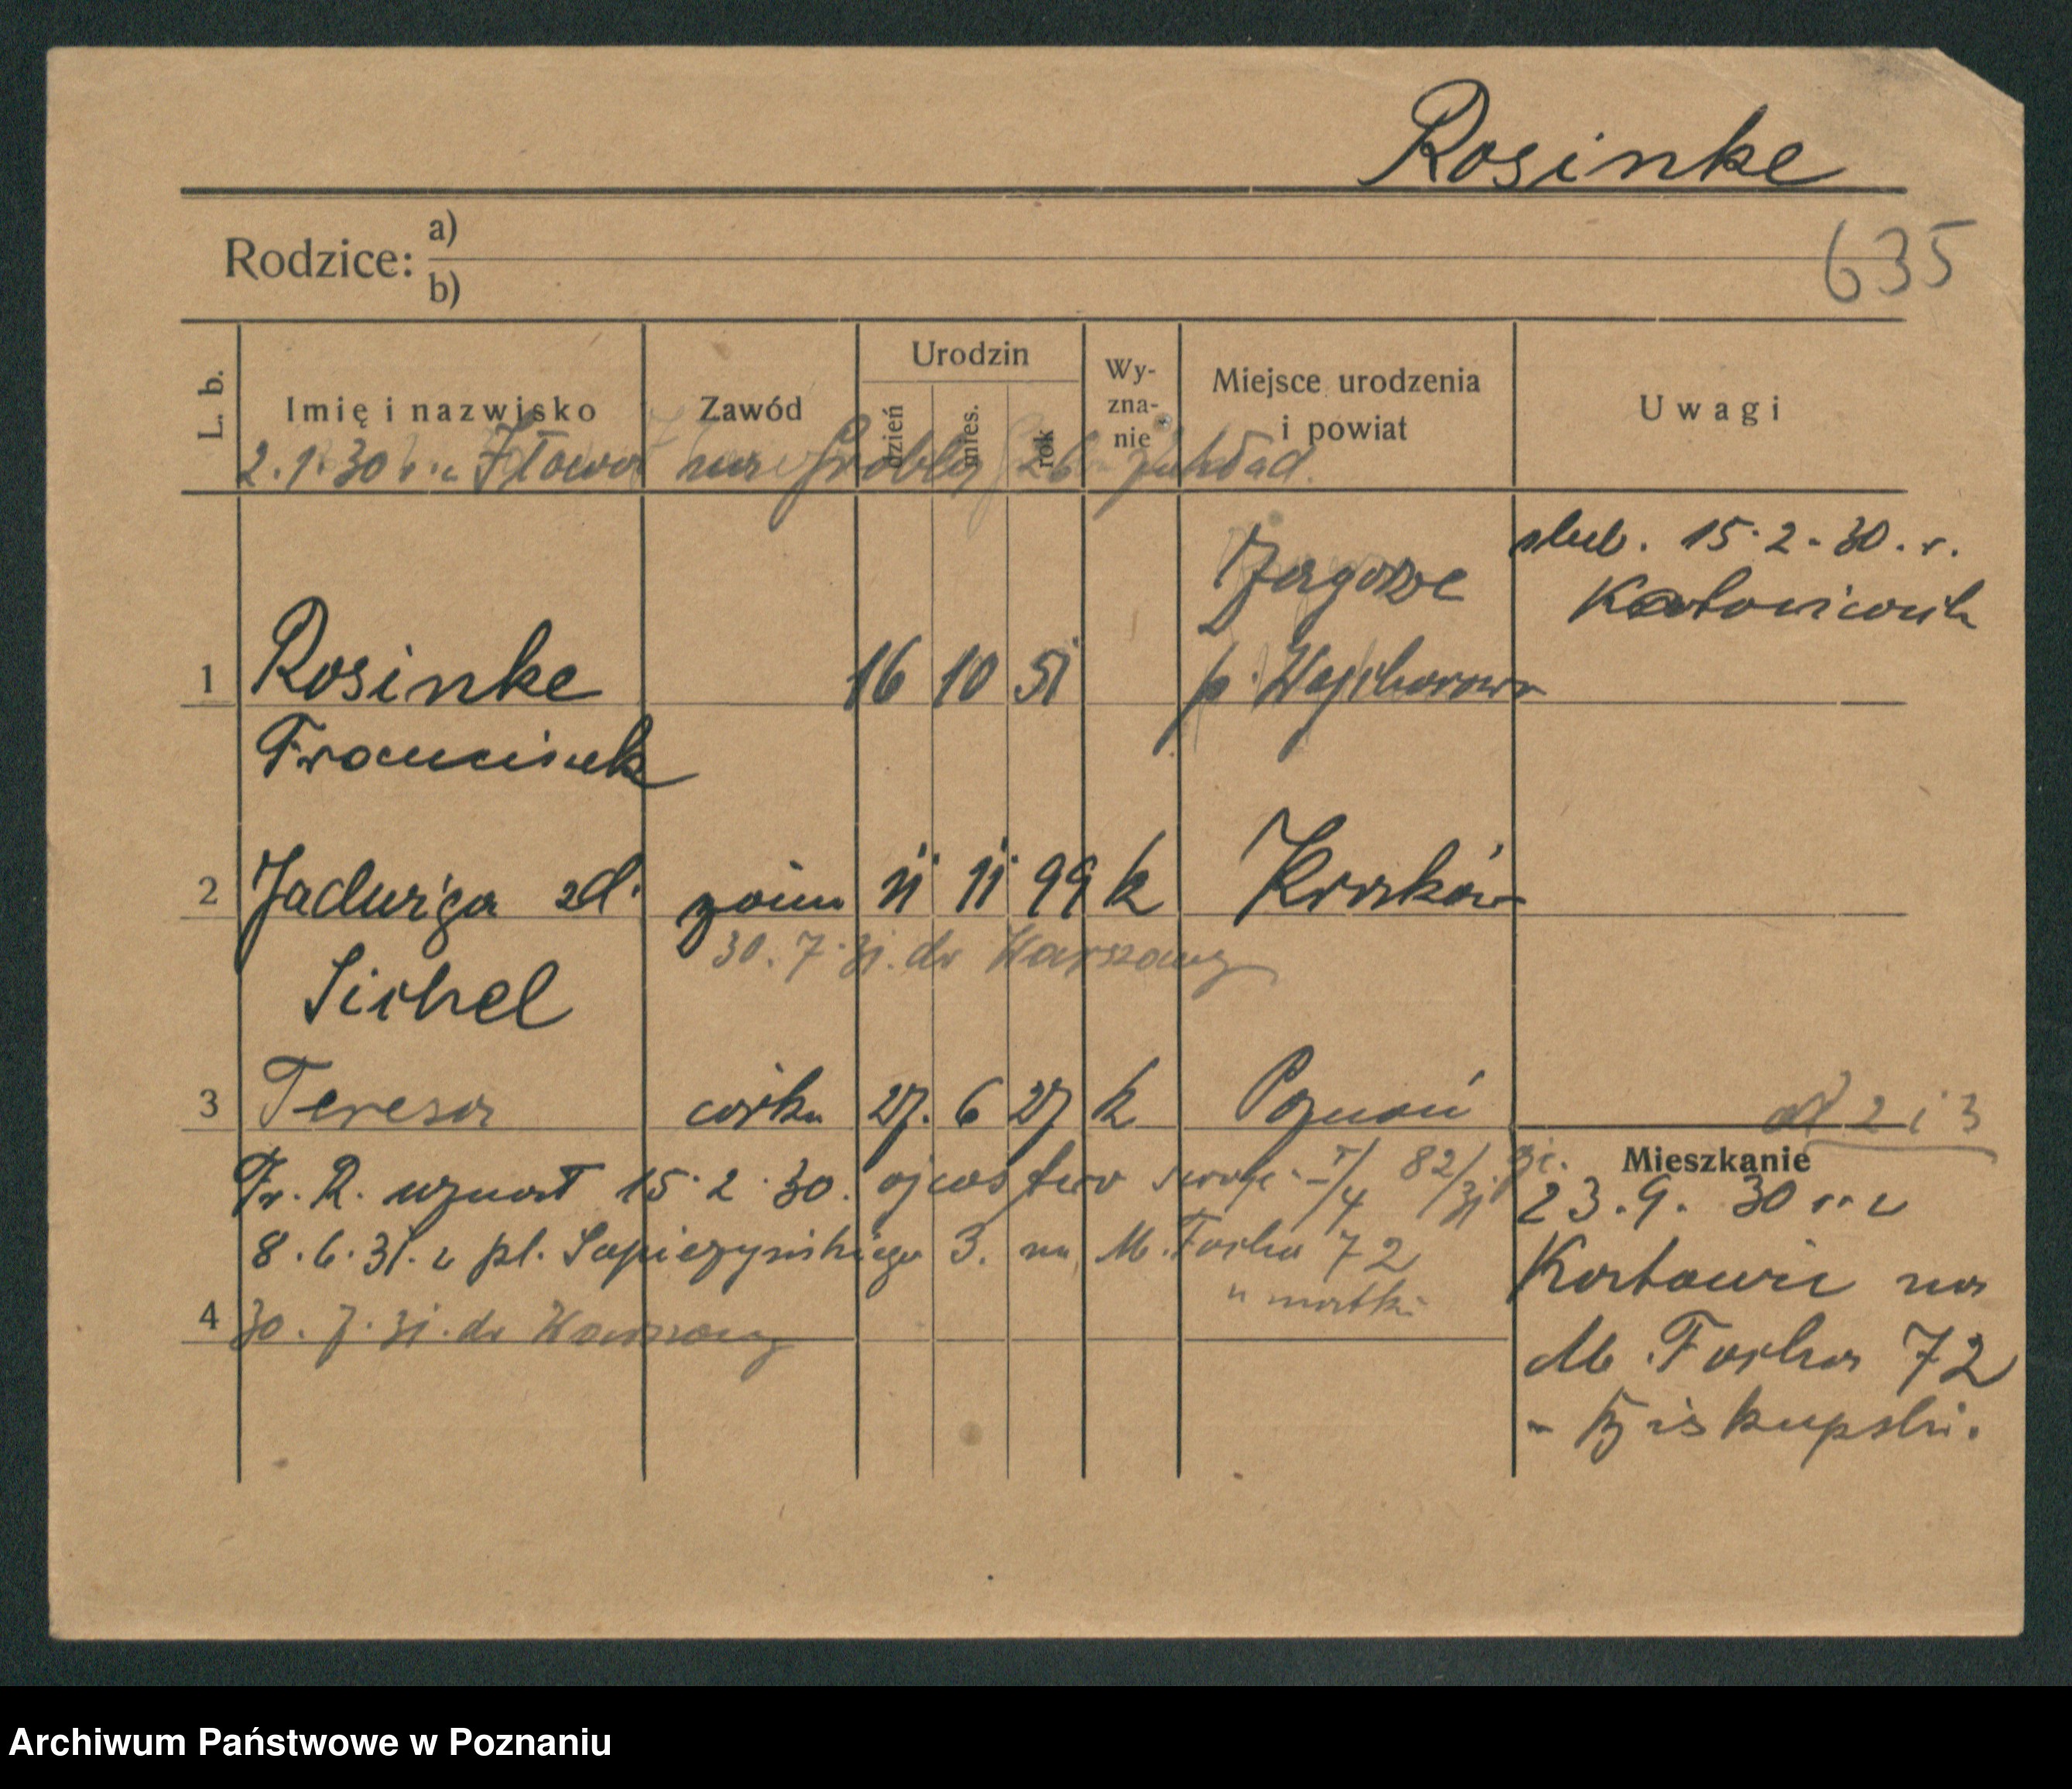 Rosinke
635
Rodzice: a)
b)
L. b.
Imię i nazwisko
Zawód
Urodzin
dzień
mies.
rok
Wy-
zna-
nie
Miejsce urodzenia
i powiat
Uwagi
2.1.30 r. z Iława na Grobla 26
ślub. 15.2.30. r.
Katowicach
1 Rosinke 16 10 51 p.
Franciszek
2 Jadwiga zd. żona 11 11 99 k Kraków
30. 7. 31. do Warszawy
Sichel
3 Teresa córka 27. 6 27 k Poznań
od 2 i 3
Fr. R. uznał 15.2.30. ojcostwo 4 82/31
Mieszkanie
23.9. 30 r. z
8.6.31. z pl. Sapieżyńskiego 3. na M. Focha 72
u matki
Katowic na
4 30. 7. 31. do Warszawy
M. Focha 72
- Biskupski.
Archiwum Państwowe w Poznaniu